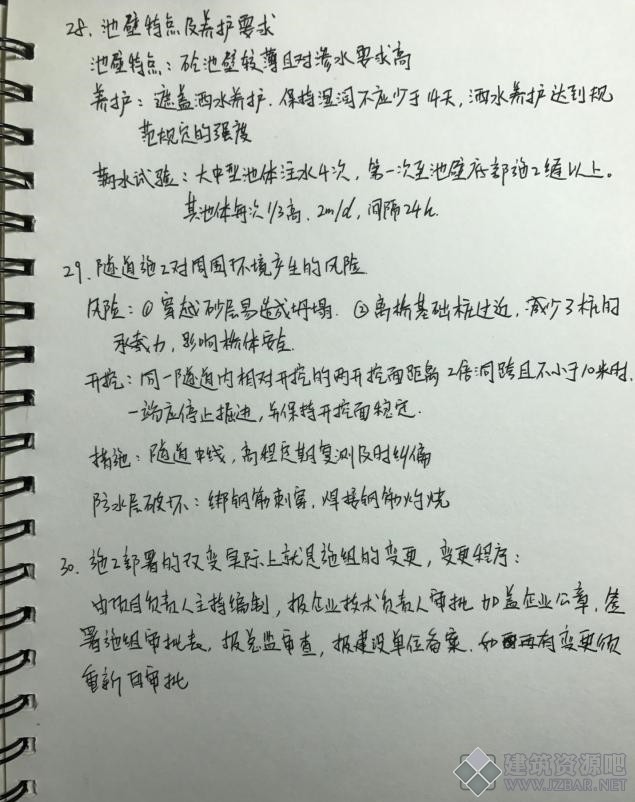 28. 池壁特点及养护要求
池壁特点：砼池壁较薄且对渗水要求高
养护：遮盖洒水养护. 保持湿润不应少于14天, 洒水养护达到规
范规定的强度
满水试验：大中型池体注水4次, 第一次至池壁底部施工缝以上。
其池体每次1/3高. 2m/d, 间隔24h.
29. 隧道施工对周围环境产生的风险
风险：① 穿越砂层易造成坍塌. ② 离桥基础桩过近, 减少了桩的
承载力, 影响桥体安全.
开挖：同一隧道内相对开挖的两开挖面距离2倍洞跨且不小于10米时.
一端应停止掘进, 并保持开挖面稳定.
措施：隧道中线, 高程定期复测及时纠偏
防水层破坏：绑钢筋刺穿, 焊接钢筋灼烧
30. 施工部署的改变实际上就是施组的变更, 变更程序：
由项目负责人主持编制, 报企业技术负责人审批 加盖企业公章, 签
署施组审批表, 报总监审查, 报建设单位备案. 如再有变更须
重新审批
建筑资源吧
WWW.JZBAR.NET